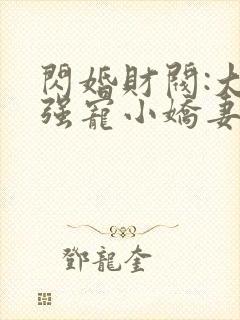 閃婚財閥:大
强寵小嬌妻
鄧龍奎